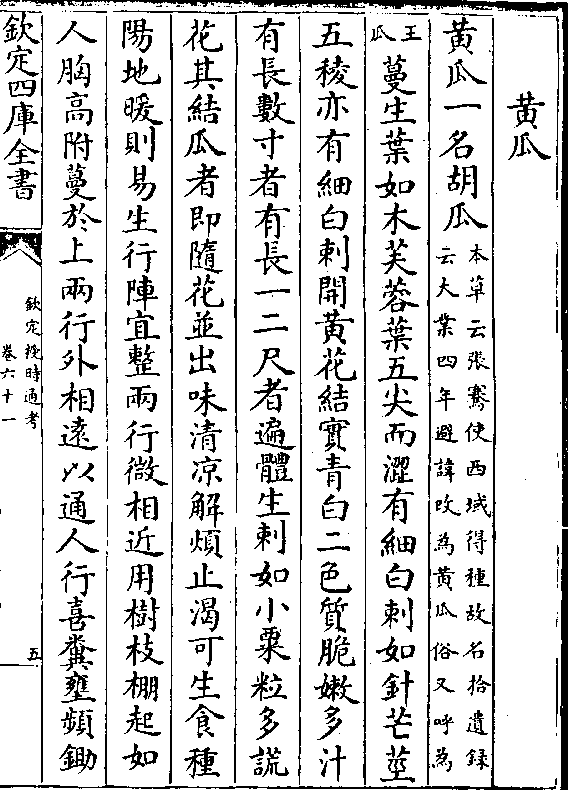 黃瓜
黃瓜一名胡瓜本草云張騫使西域得種故名拾遺錄
云大業四年避諱改為黃瓜俗又呼為
王瓜蔓生葉如木芙蓉葉五尖而澀有細白刺如針芒莖
五稜亦有細白刺開黃花結實青白二色質脆嫩多汁
有長數寸者有長一二尺者遍體生刺如小粟粒多謊
花其結瓜者即隨花並出味清凉解煩止渴可生食種
陽地暖則易生行陣宜整兩行微相近用樹枝棚起如
人胸高附蔓於上兩行外相遠以通人行喜糞壅頻鋤
欽定四庫全書
欽定授時通考
卷六十一
五